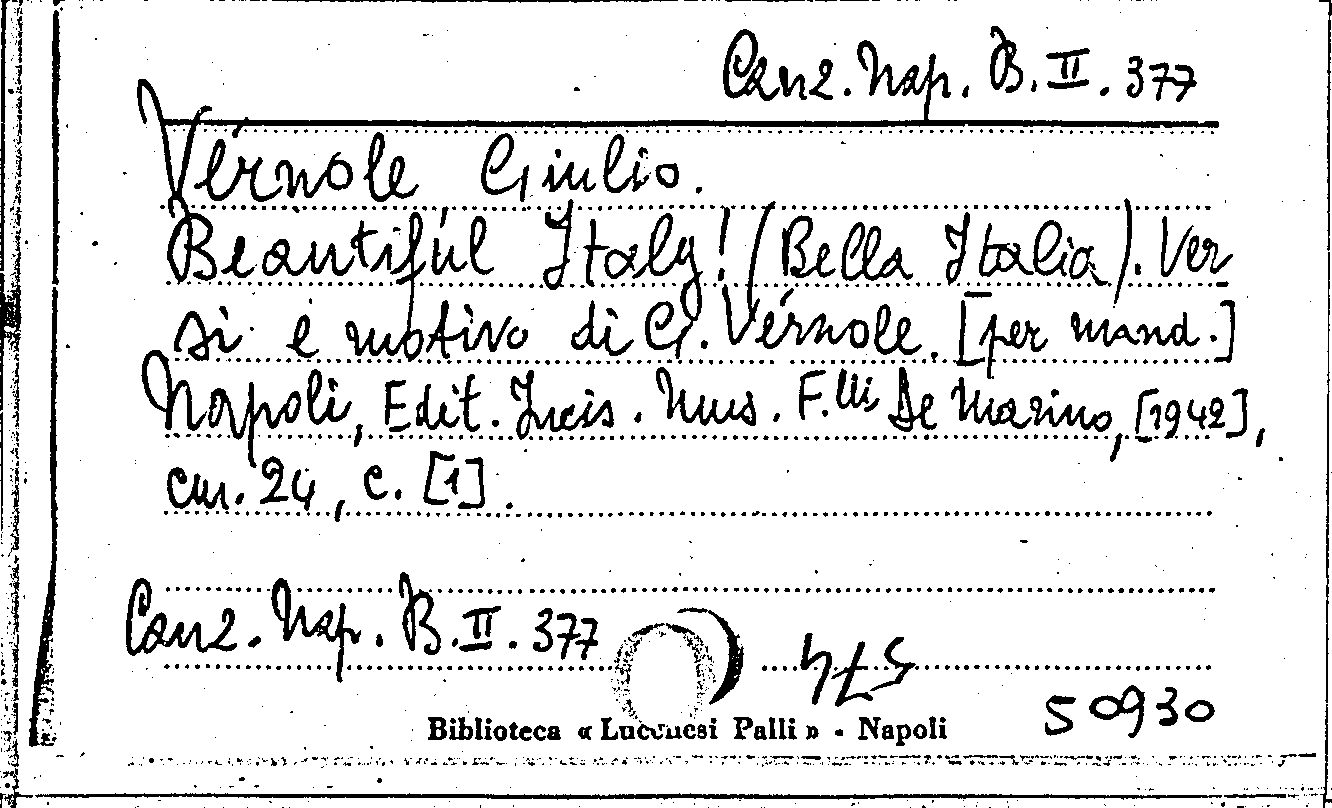 Canz. Nap. B. II. 377
Vérnole Giulio.
Beautiful Italy! (Bella Italia). Ver
si e motivo di G. Vérnole. [per mand.]
Napoli, Edit. Incis. Mus. F.lli De Marino, [1942],
cm. 24, c. [1].
Canz. Nap. B. II. 377
Biblioteca « Lucchesi Palli » - Napoli
50930